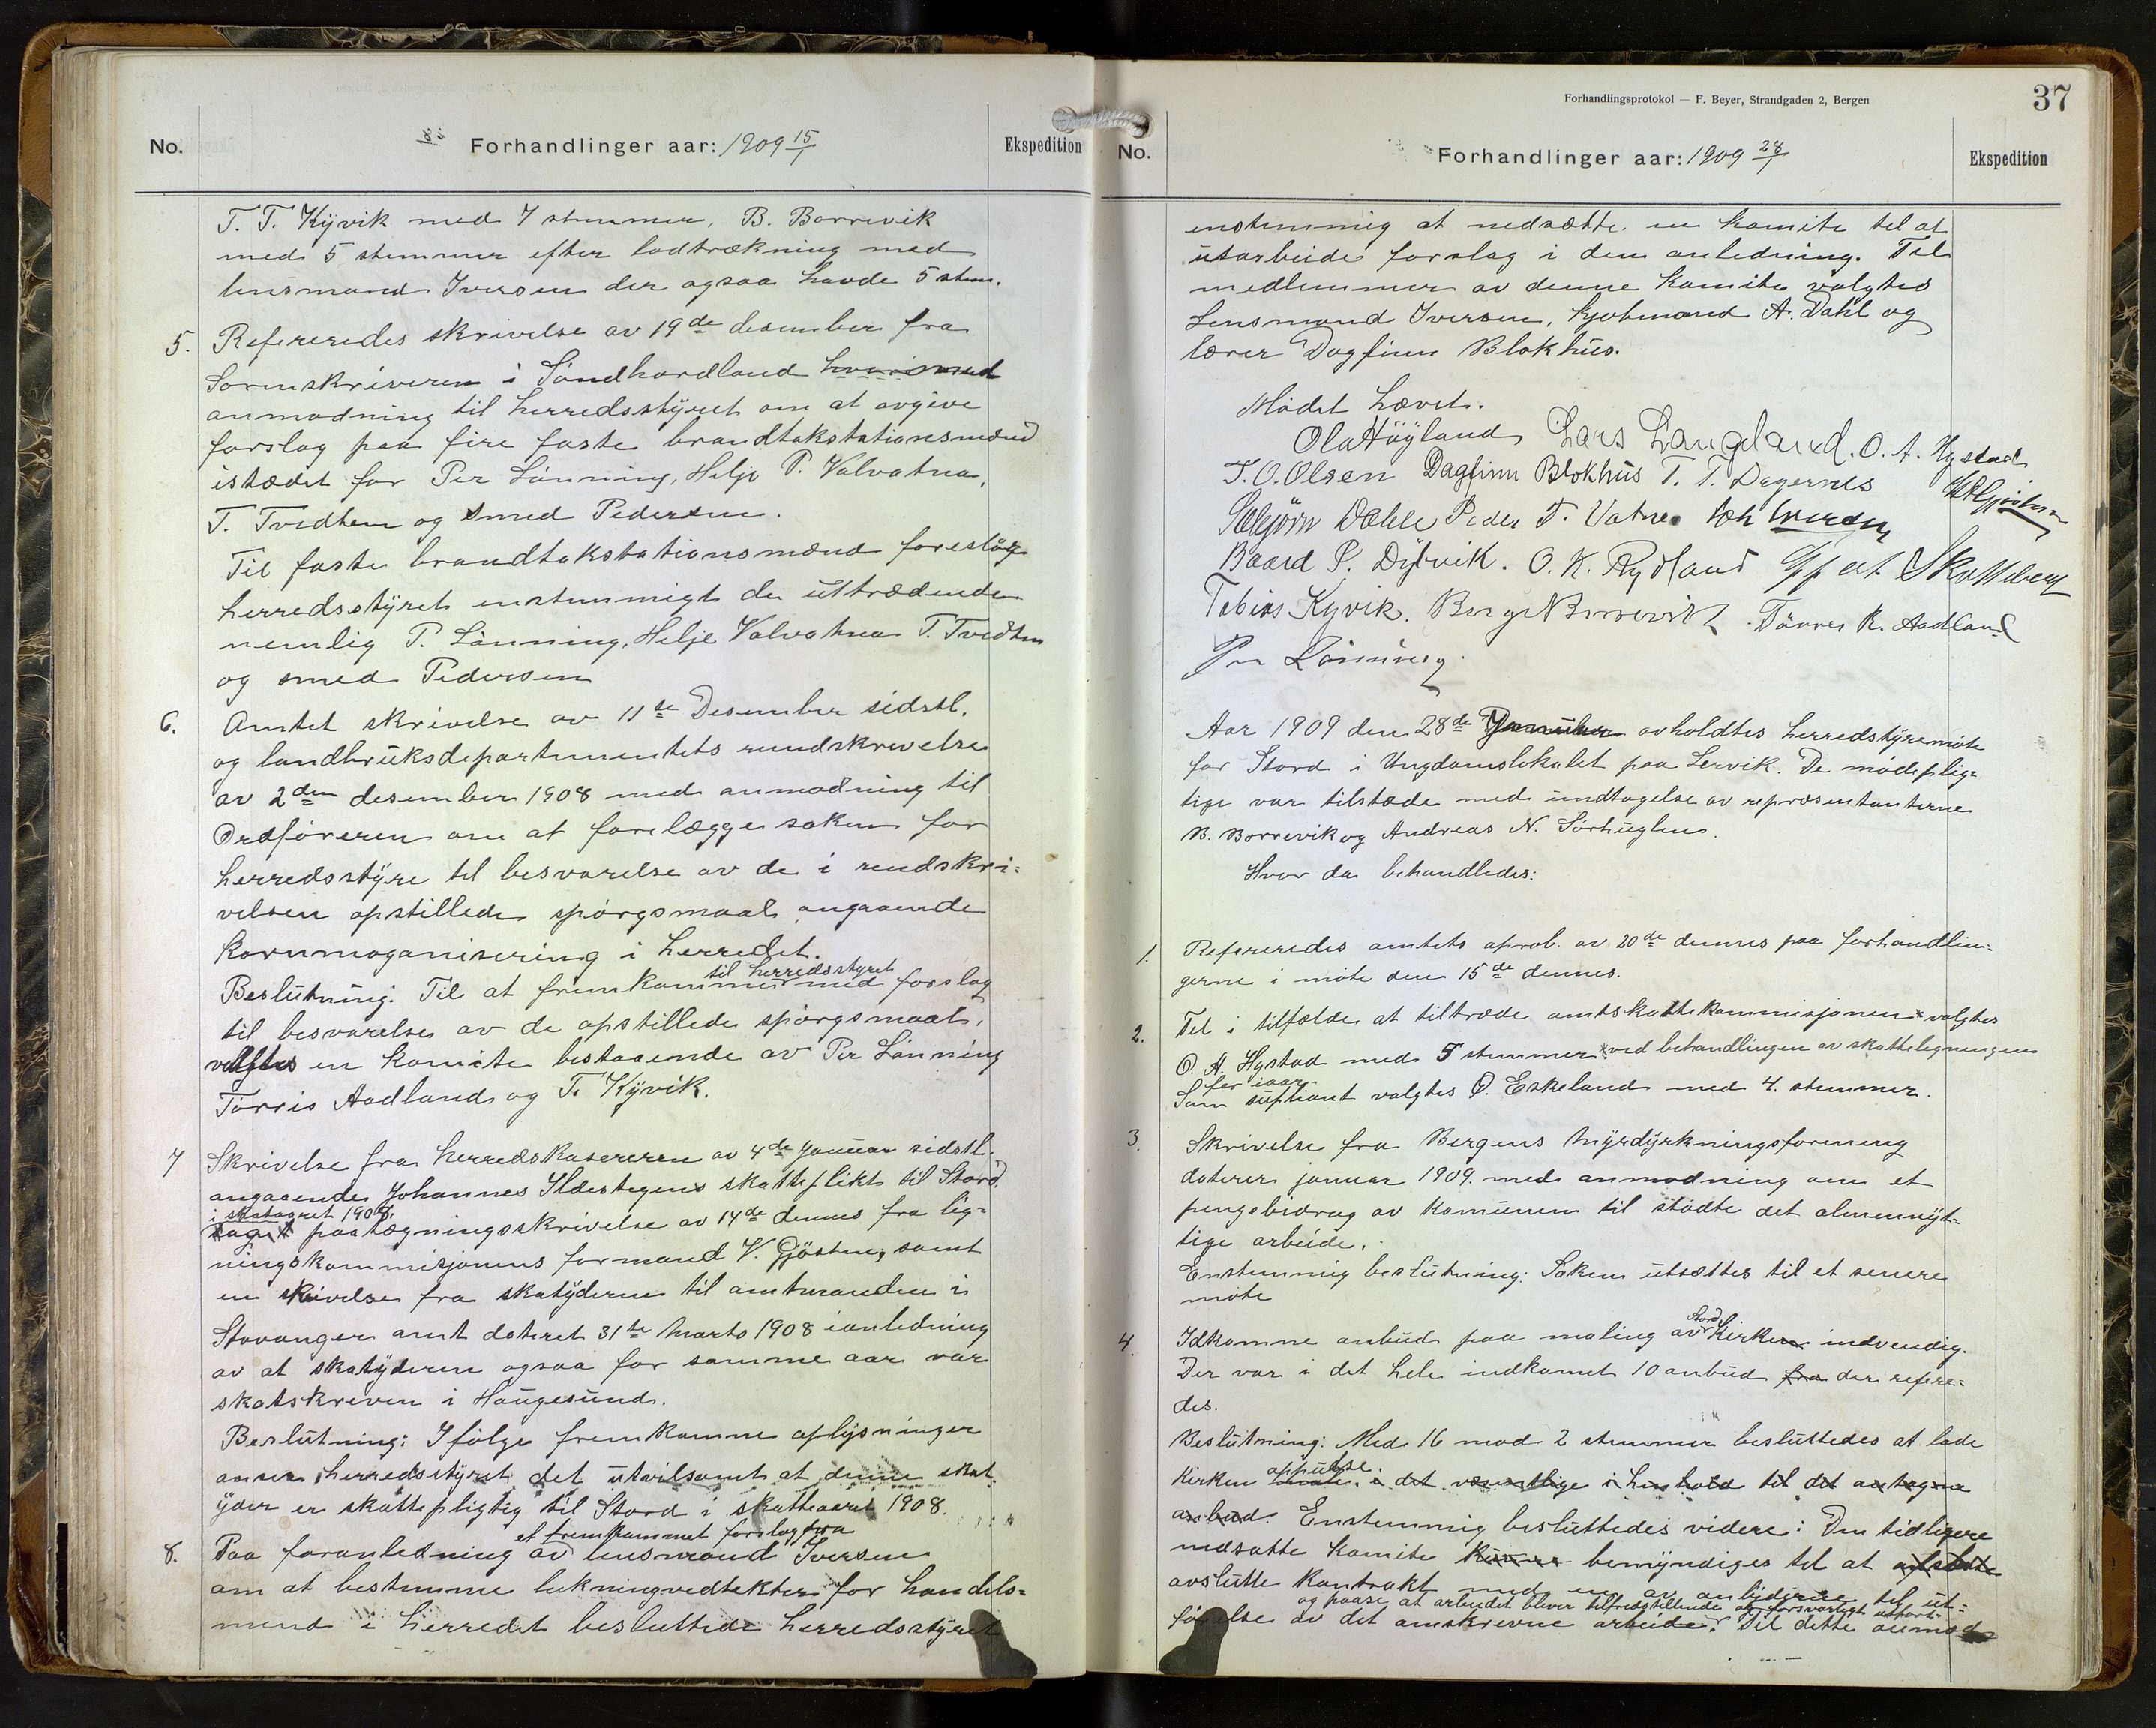 No.
Forhandlinger aar: 1909 15/1
Ekspedition
T. T. Kyvik med 7 stemmer, B. Borrevik
med 5 stemmer efter lodtrækning med
lensmand Iversen der ogsaa havde 5 stem.
5. Refereredes skrivelse av 19de desember fra
Sorenskriveren i Söndhordland hvorimed
anmodning til herredsstyret om at avgive
forslag paa fire faste brandtakstationsmænd
istædet for Per Lönning, Helje P. Valvatna,
T. Tvedten og Smed Pedersen.
Til faste brandtakstationsmænd foreslog
herredsstyret enstemmigt de uttrædende
nemlig P. Lönning, Helje Valvatna T. Tvedten
og smed Pedersen
6. Amtet skrivelse av 11te Desember sidstl.
og landbruksdepartementets rundskrivelse
av 2den desember 1908 med anmodning til
Ordföreren om at forelægge saken for
herredsstyre til besvarelse av de i rundskri-
velsen opstillede spörgsmaal angaaende
kornmaganisering i herredet.
til herredsstyret
Beslutning: Til at fremkomme med forslag
til besvarelse av de opstillede spörgsmaal,
valgtes en komite bestaaende av Per Lönning
Törris Aadland og T. Kyvik.
7 Skrivelse fra herredskasereren av 4de Januar sidstl.
angaaende Johannes Ildestegens skatteplikt til Stord
i skatagret 1908,
paategningsskrivelse av 14de dennes fra lig-
ningskommisjonens formand V. Gjöstein, samt
en skrivelse fra skatyderen til amtmanden i
Stavanger amt dateret 31te Marts 1908 ianledning
av at skatyderen ogsaa for samme aar var
skatskreven i Haugesund.
Beslutning: Ifölge fremkomne oplysninger
anser herredsstyret det utvilsomt at denne skat-
yder er skattepligtig til Stord i skatteaaret 1908.
et fremkommet forslag fra
8. Paa foranledning av lensmand Iversen
om at bestemme lukningvedtekter for handels-
mænd i herredet besluttede herredsstyret
Forhandlingsprotokol — F. Beyer, Strandgaden 2, Bergen
37
No.
Forhandlinger aar: 1909 28/1
Ekspedition
enstemmig at nedsætte en komite til at
utarbeide forslag i den anledning. Til
medlemmer av denne komite valgtes
Lensmand Iversen, kjøbmand A. Dahl og
lærer Dagfinn Blokhus.
Mödet hævet.
Ola Höyland Lars Langeland. O. A. Hystad
T. O. Olsen Dagfinn Blokhus T. T. Dagernes
Sæbjörn Dalele Peder T. Vatne Joh Iversen
Baard P. Dybvik. O. K. Rydland
Tobias Kyvik. Berge Borrevik. Törres K. Aadland
Per Lönning.
Aar 1909 den 28de Januar avholdtes herredstyremöte
for Stord i Ungdomslokalet paa Lervik. De mödeplig-
tige var tilstæde med undtagelse av repræsentanterne
B. Borrevik og Andreas N. Sörhuglen.
Hvor da behandledes:
1. Refereredes amtets aprob. av 20de dennes paa forhandlin-
gerne i möte den 15de dennes.
2. Til i tilfælde at tiltræde amtskattekommisjonen valgtes
O. A. Hystad med 5 stemmer ved behandlingen av skatteligningen
for iaar.
Som supliant valgtes O. Eskeland med 4. stemmer.
3. Skrivelse fra Bergens Myrdyrkningsforening
daterer januar 1909. med anmodning om et
pengebidrag av Komunen til stödte det almennyt-
tige arbeide.
Enstemmig beslutning: Saken utsættes til et senere
möte
Stord
4. Idkomne anbud paa maling av Kirken indvendig.
Der var i det hele indkomet 10 anbud fra der refere-
des.
Beslutning: Med 16 mod 2 stemmer besluttedes at lade
Kirken oppudse. i det væsentlige i henhold til det antagne
anbud. Enstemmig besluttedes videre: Den tidligere
nedsatte komite bemyndiges til at
avslutte kontrakt med en av anbyderne til ut-
og paase at arbeidet bliver tilfredstillende og forsvarligt utfört.
förelse av det omskrevne arbeide. Til dette anmod